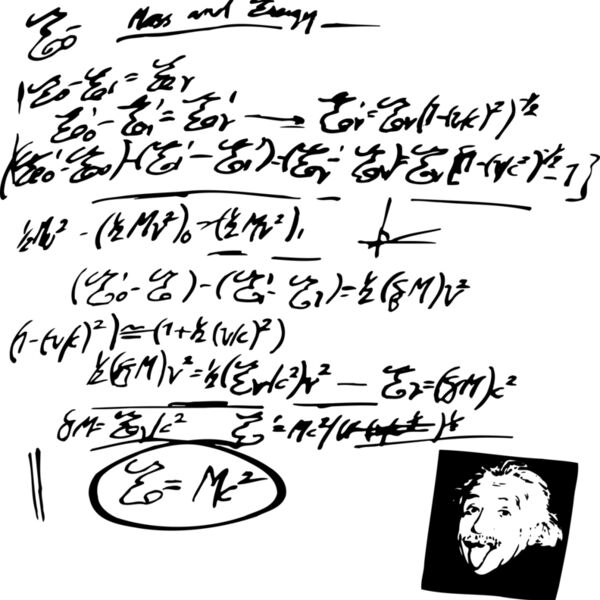 ℰ₀= Mass and Energy
ℰ₀-ℰ₁=ℰᵣ
ℰ₀'-ℰ₁'=ℰᵣ' → ℰᵣ'=ℰᵣ(1-(v/c)²)^-½
(ℰ₀'-ℰ₀)-(ℰ₁'-ℰ₁)=(ℰᵣ'-ℰᵣ)=ℰᵣ[(1-(v/c)²)^-½-1]
½Mv² - (½Mv²)₀-(½Mv²)₁
(ℰ₀'-ℰ₀)-(ℰ₁'-ℰ₁)=½(δM)v²
(1-(v/c)²)≅(1+½(v/c)²)
½(δM)v²=½(ℰᵣ/c²)v² — ℰᵣ=(δM)c²
δM=ℰᵣ/c² ℰ₀'=Mc²/( )½
ℰ₀=Mc²